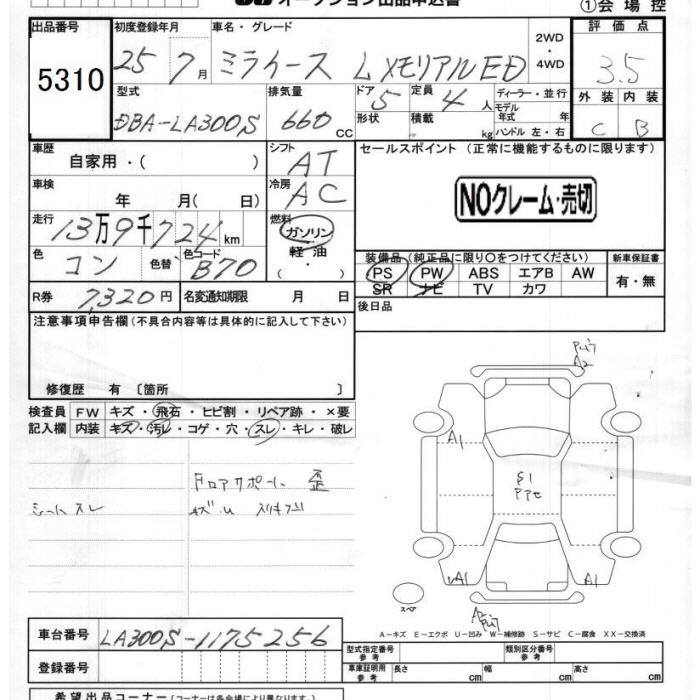 オークション出品申込書
①会場控
出品番号
5310
初度登録年月
25 7月
車名・グレード
ミライース Lメモリアル ED
2WD
・
4WD
評価点
3.5
外装 内装
C B
型式
DBA-LA300S
排気量
660 CC
ドア 5
形状
定員 4 人
積載 kg
ディーラー・並行
モデル年式 年
ハンドル 左・右
車歴
自家用・( )
シフト
AT
車検
年 月( 日)
冷房
AC
走行
13万9千724km
燃料
ガソリン
軽油
( ・ )
色
コン
色替
色コード
B70
R券 7,320円
名変通知期限 月 日
セールスポイント (正常に機能するものに限ります)
NOクレーム・売切
装備品 (純正品に限り○をつけてください)
PS PW ABS エアB AW
SR ナビ TV カワ
新車保証書
有・無
後日品
注意事項申告欄(不具合内容等は具体的に記入して下さい)
修復歴 有 〔箇所 〕
検査員 FW キズ・飛石・ヒビ割・リペア跡・×要
記入欄 内装 キズ・汚レ・コゲ・穴・スレ・キレ・破レ
シート スレ
A2
A1
S1
A1
A1
スペア
A-キズ E-エクボ U-凹み W-補修跡 S-サビ C-腐食 XX-交換済
車台番号 LA300S-1175256
登録番号
型式指定番号 参考
類別区分番号 参考
車庫証明用 参考 長さ cm 幅 cm 高さ cm
希望出品コーナー(コーナーは各会場により異なります。)